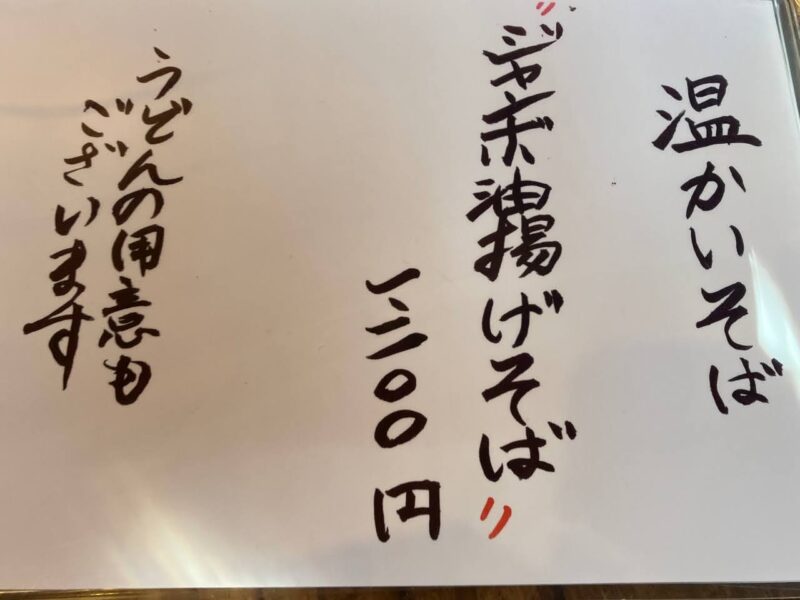 温かいそば
"ジャンボ油揚げそば"
一二〇〇円
うどんの用意も
ございます